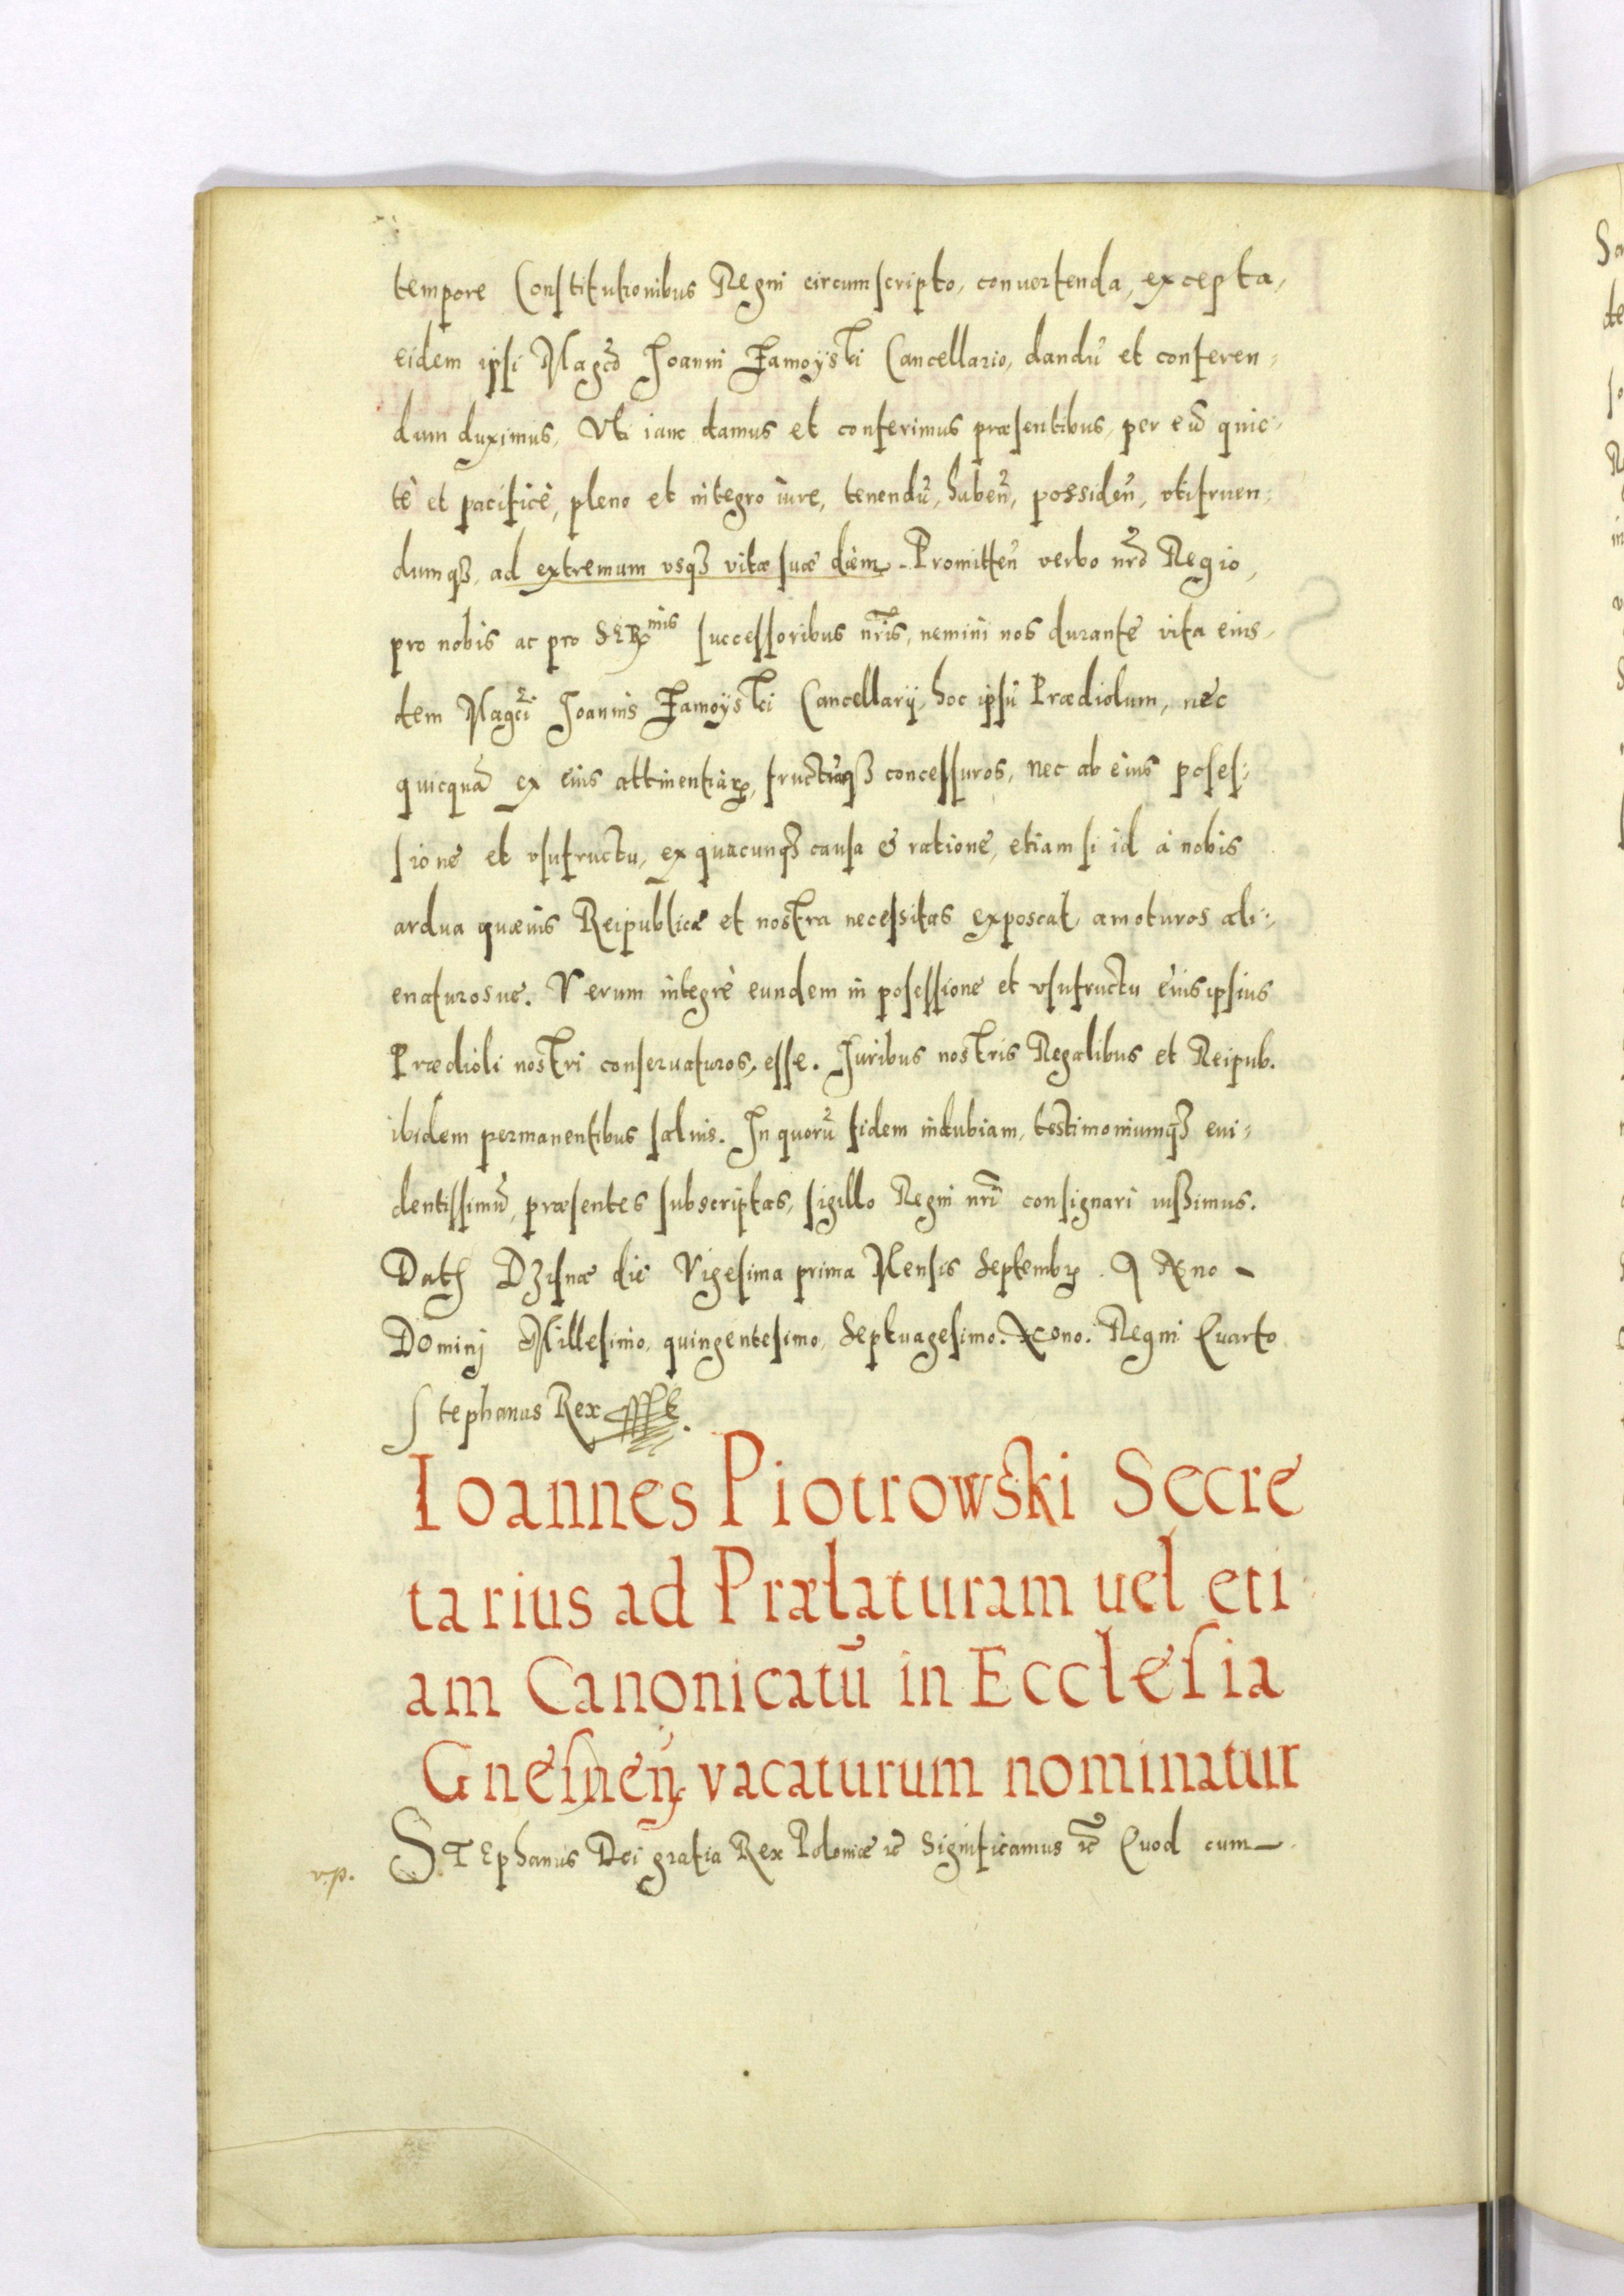 tempore Constitutionibus Regni circumscripto, conuertenda, excepta,
eidem ipsi Magco Joanni Zamoyski Cancellario, dandū et conferen-
dum duximus, Vti iane damus et conferimus præsentibus, per eūd quie-
tè et pacificè, pleno et integro iure, tenendū, habeñ, possideñ, vtifruen-
dumqȝ, ad extremum vsqȝ vitæ suæ diem. Promitteñ verbo nrō Regio,
pro nobis ac pro SERmis successoribus nris, nemini nos durante vita eius-
dem Magci Joannis Zamoyski Cancellarij, hoc ipsū Prædiolum, nec
quicquā ex eius attinentijs, fructuqȝ concessuros, nec ab eius poses-
sione et vsufructu, ex quacunqȝ causa & ratione, etiam si id à nobis
ardua quæuis Reipublicæ et nostra necessitas exposcat, amoturos ali-
enaturosue. Verum integrè eundem in posessione et vsufructu eius ipsius
Prædioli nostri conseruaturos, esse. Juribus nostris Regalibus et Reipub.
ibidem permanentibus saluis. In quorū fidem indubiam, testimoniumqȝ eui-
dentissimū, præsentes subscriptas, sigillo Regni nrī consignari iussimus.
Dat Dzisnæ die Vigesima prima Mensis Septembr. Anno
Dominj Millesimo, quingentesimo, Septuagesimo. Nono. Regni Quarto
Stephanus Rex
Ioannes Piotrowski Secre
tarius ad Prælaturam uel eti
am Canonicatū in Ecclesia
Gnesneñ vacaturum nominatur
v.p. STEphanus Dei gratia Rex Poloniæ rc Significamus rc Quod cum